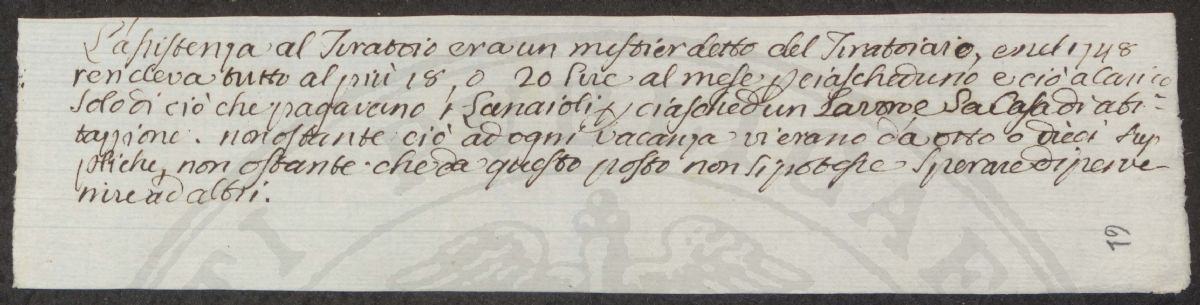 L'assistenza al Tiratoio era un mestier detto del Tiratoiaio, e nel 1748
rendeva tutto al più 18, o 20 lire al mese p ciascheduno e ciò a carico
solo di ciò che pagavano i Lanaioli p ciaschedun Lavore La Casa di abi=
tazzione. non ostante ciò ad ogni vacanza vi erano da otto o dieci sup
pliche, non ostante che da questo posto non si potesse sperare di perve-
nire ad altri.
19